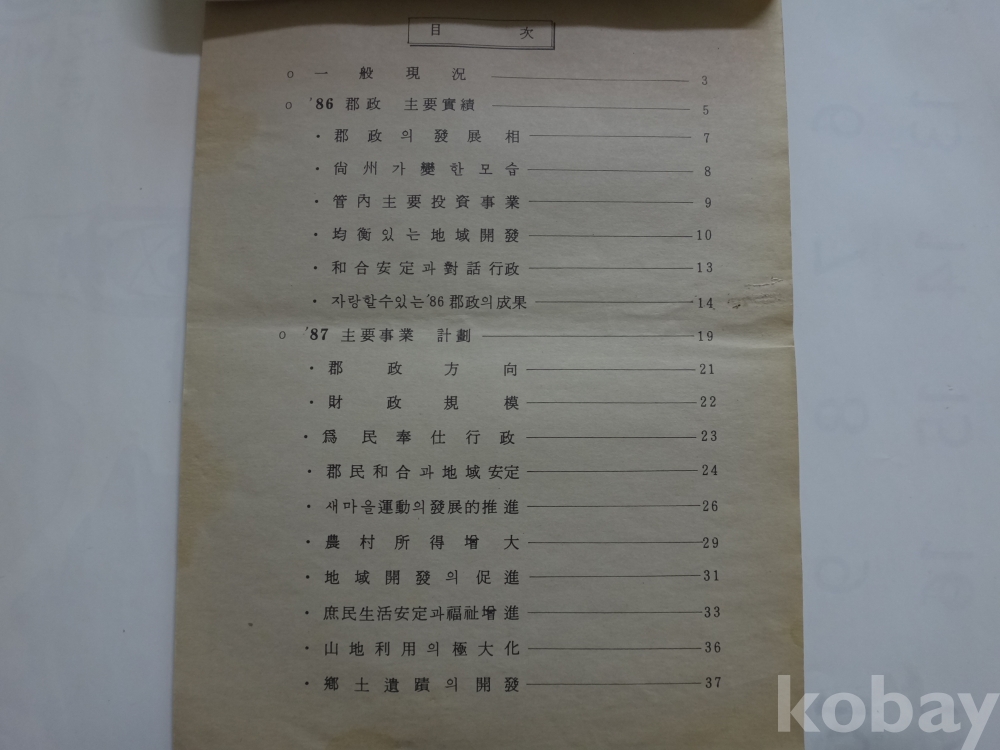 目 次
o 一般現況 3
o '86 郡政 主要實績 5
· 郡政의 發展相 7
· 尙州가 變한 모습 8
· 管內主要投資事業 9
· 均衡있는 地域開發 10
· 和合安定과 對話行政 13
· 자랑할수있는 '86 郡政의 成果 14
o '87 主要事業 計劃 19
· 郡政方向 21
· 財政規模 22
· 爲民奉仕行政 23
· 郡民和合과 地域安定 24
· 새마을運動의 發展的推進 26
· 農村所得增大 29
· 地域開發의 促進 31
· 庶民生活安定과 福祉增進 33
· 山地利用의 極大化 36
· 鄕土遺蹟의 開發 37
kobay